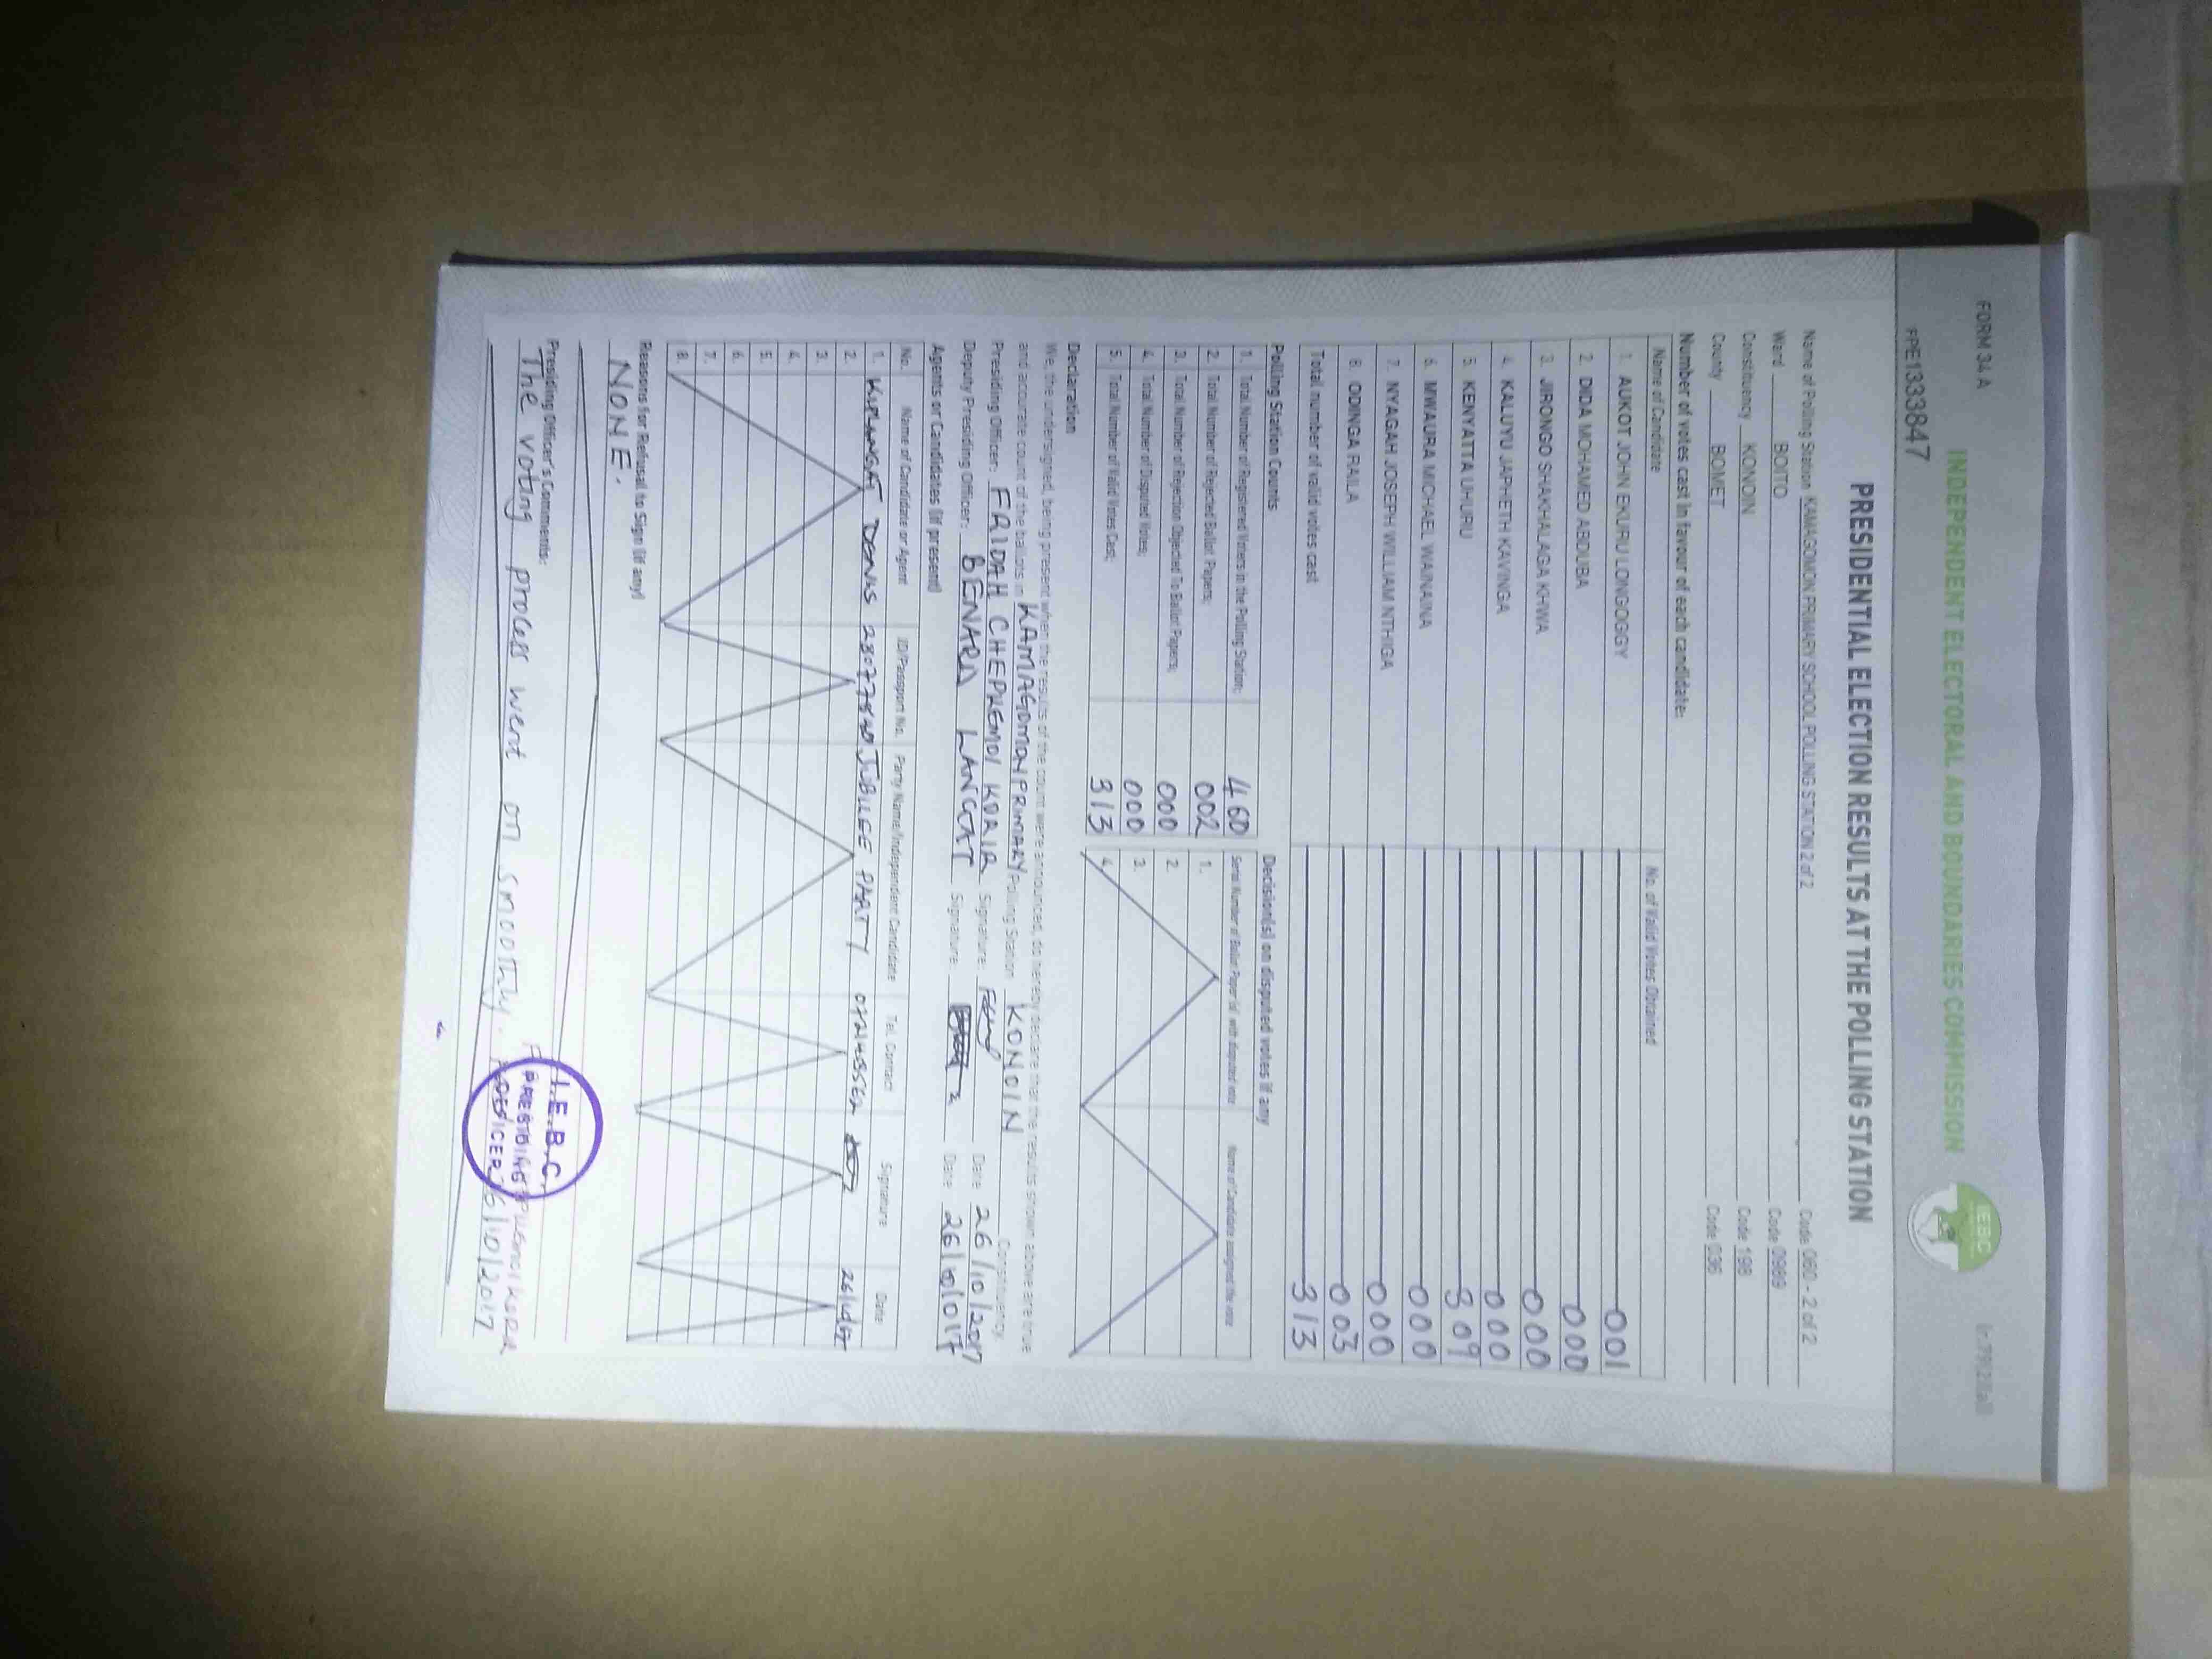 FORM 34 A
INDEPENDENT ELECTORAL AND BOUNDARIES COMMISSION
IEBC
PPE133847
PRESIDENTIAL ELECTION RESULTS AT THE POLLING STATION
Name of Polling Station KAMAGOMON PRIMARY SCHOOL POLLING STATION 2 of 2 Code 060 - 2 of 2
Ward BOITO Code 0989
Constituency KONOIN Code 198
County BOMET Code 036
Number of votes cast in favour of each candidate:
Name of Candidate No. of Valid Votes Obtained
1. AUKOT JOHN EKURU LONGOGGY 001
2. DIDA MOHAMED ABDUBA 000
3. JIRONGO SHAKHALAGA KHWA 000
4. KALUYU JAPHETH KAVINGA 000
5. KENYATTA UHURU 309
6. MWAURA MICHAEL WAINAINA 000
7. NYAGAH JOSEPH WILLIAM NTHIGA 000
8. ODINGA RAILA 003
Total number of valid votes cast 313
Polling Station Counts Decision(s) on disputed votes if any
1. Total Number of Registered Voters in the Polling Station; 460 Serial Number of Ballot Paper(s) with disputed vote Name of Candidate assigned the vote
2. Total Number of Rejected Ballot Papers; 002 1.
3. Total Number of Rejection Objected To Ballot Papers; 000 2.
4. Total Number of Disputed Votes; 000 3.
5. Total Number of Valid Votes Cast; 313 4.
Declaration
We, the undersigned, being present when the results of the count were announced, do hereby declare that the results shown above are true
and accurate count of the ballots in KAMAGOMON PRIMARY Polling Station KONOIN Constituency
Presiding Officer: FRIDAH CHEPKEMOI KORIR Signature: Date 26/10/2017
Deputy Presiding Officer: BENARD LANGAT Signature: Date 26/10/017
Agents or Candidates (if present)
No. Name of Candidate or Agent ID/Passport No. Party Name/Independent Candidate Tel. Contact Signature Date
1. KIPLANGAT DENIS JUBILEE PARTY
2.
3.
4.
5.
6.
7.
8.
Reasons for Refusal to Sign (if any)
NONE.
Presiding Officer's Comments:
The voting process went on smoothly.
I.E.B.C.
PRESIDING
OFFICER
26/10/2017